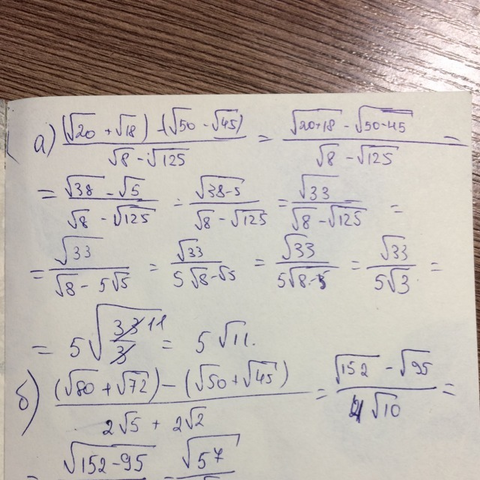 а) ((√20 + √18) - (√50 - √45)) / (√8 - √125) = (√20+18 - √50-45) / (√8 - √125) =
= (√38 - √5) / (√8 - √125) = √38-5 / (√8 - √125) = √33 / (√8 - √125) =
= √33 / (√8 - 5√5) = √33 / (5√8-√5) = √33 / (5√8-5) = √33 / (5√3) =
= 5√(33 11 / 3) = 5√11.
б) ((√80 + √72) - (√50 + √45)) / (2√5 + 2√2) = (√152 - √95) / (4√10) =
= √152-95 = √57